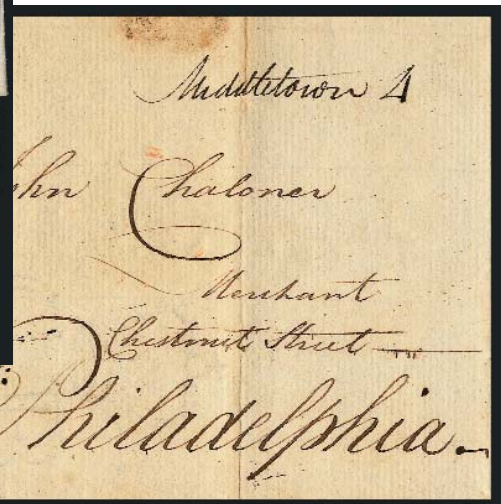 Middletown 4
John Chaloner
Merchant
Chestnut Street
Philadelphia.